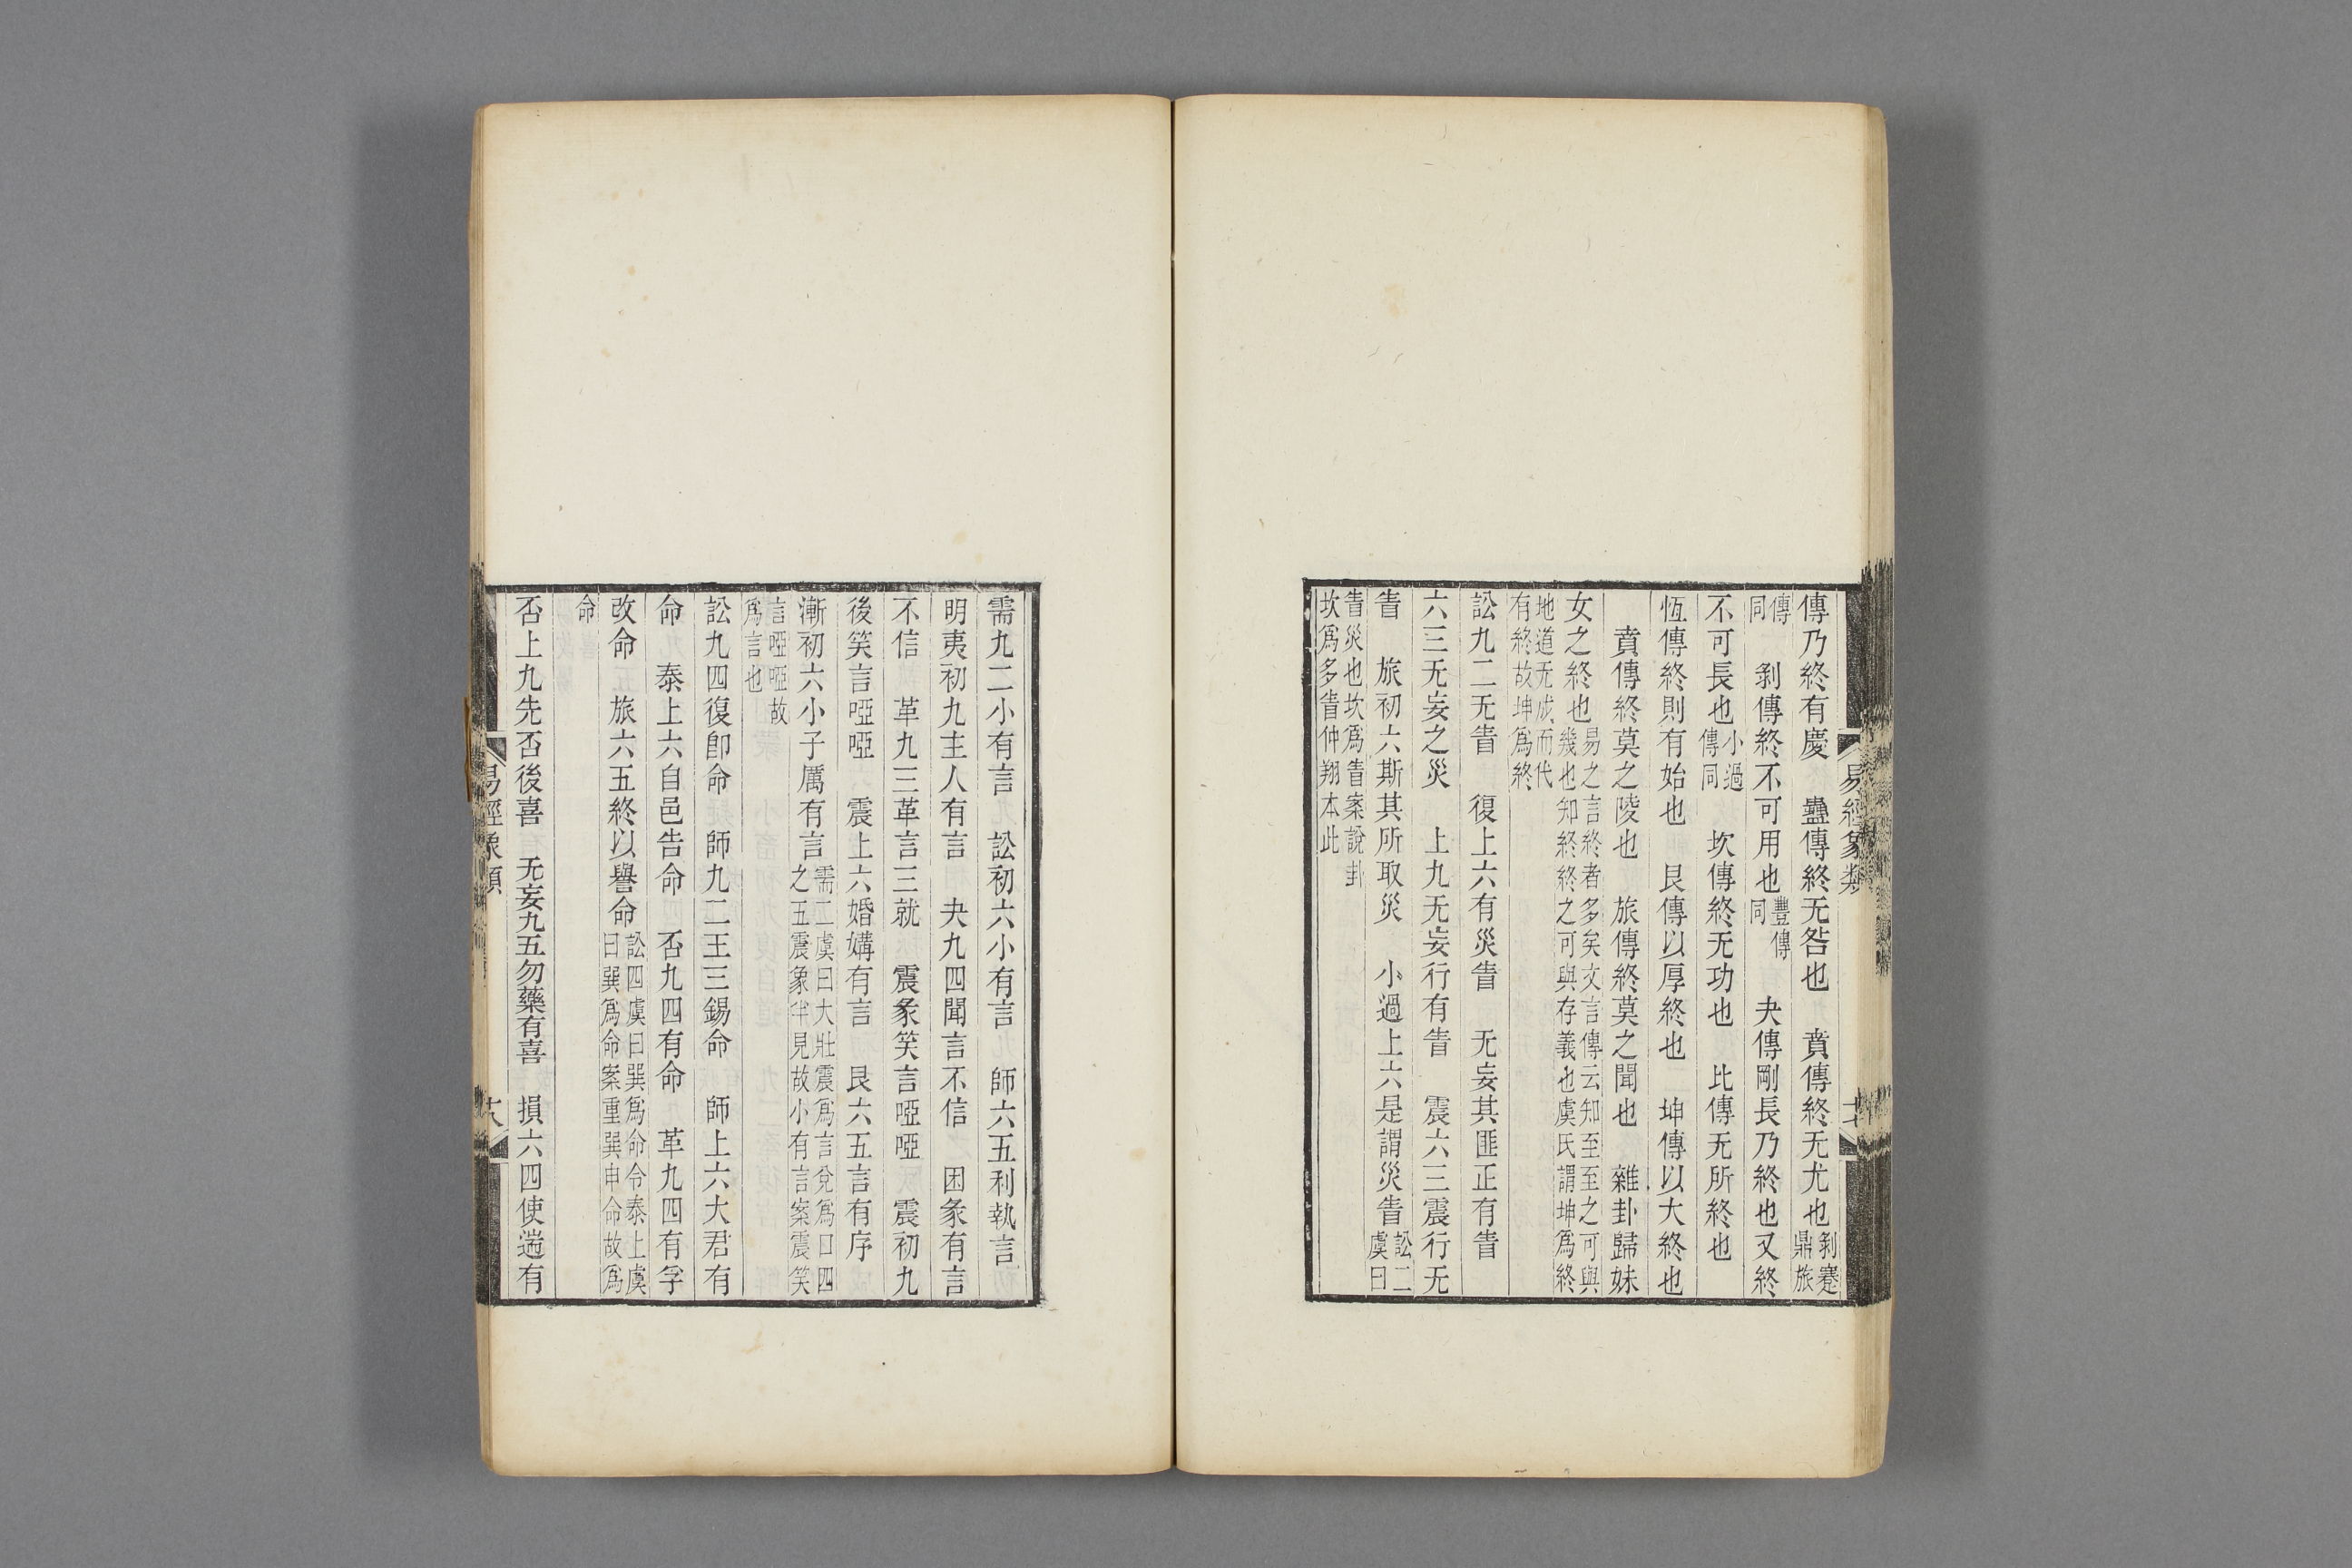 傳乃終有慶　蠱傳終无咎也　賁傳終无尤也剝蹇鼎旅
傳同　剝傳終不可用也豐傳同　夬傳剛長乃終也又終
不可長也小過傳同　坎傳終无功也　比傳无所終也
恆傳終則有始也　艮傳以厚終也　坤傳以大終也
賁傳終莫之陵也　旅傳終莫之聞也　雜卦歸妹
女之終也易之言終者多矣文言傳云知至至之可與幾也知終終之可與存義也虞氏謂坤爲終
地道无成而代有終故坤爲終
訟九二无眚　復上六有災眚　无妄其匪正有眚
六三无妄之災　上九无妄行有眚　震六三震行无
眚　旅初六斯其所取災　小過上六是謂災眚訟二虞曰
眚災也坎爲眚案說卦坎爲多眚仲翔本此
易經象類
十七
需九二小有言　訟初六小有言　師六五利執言
明夷初九主人有言　夬九四聞言不信　困彖有言
不信　革九三革言三就　震彖笑言啞啞　震初九
後笑言啞啞　震上六婚媾有言　艮六五言有序
漸初六小子厲有言需二虞曰大壯震爲言兌爲口四之五震象半見故小有言案震笑
言啞啞故爲言也
訟九四復卽命　師九二王三錫命　師上六大君有
命　泰上六自邑告命　否九四有命　革九四有孚
改命　旅六五終以譽命訟四虞曰巽爲命令泰上虞曰巽爲命案重巽申命故爲
命
否上九先否後喜　无妄九五勿藥有喜　損六四使遄有
易經象類
十八